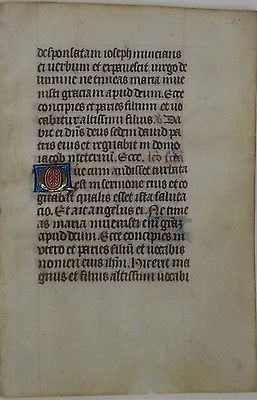 desponsatam ioseph nuncians
ei verbum et expavescit virgo de
lumine ne timeas maria inve
nisti graciam apud deum. Ecce
concipies et paries filium et vo
cabitur altissimi filius. V. Da
bit ei dñs deus sedem david pa
tris eius et regnabit in domo
iacob in eternũ. Ecce.
Que cum audisset turbata
est in sermone eius et co
gitabat qualis esset ista saluta
cio. Et ait angelus ei. Ne time
as maria invenisti eñ graz
apud deum. Ecce concipies in
utero et paries filiũ et vocabis
nomen eius ihm. Hic erit ma
gnus et filius altissimi vocabi